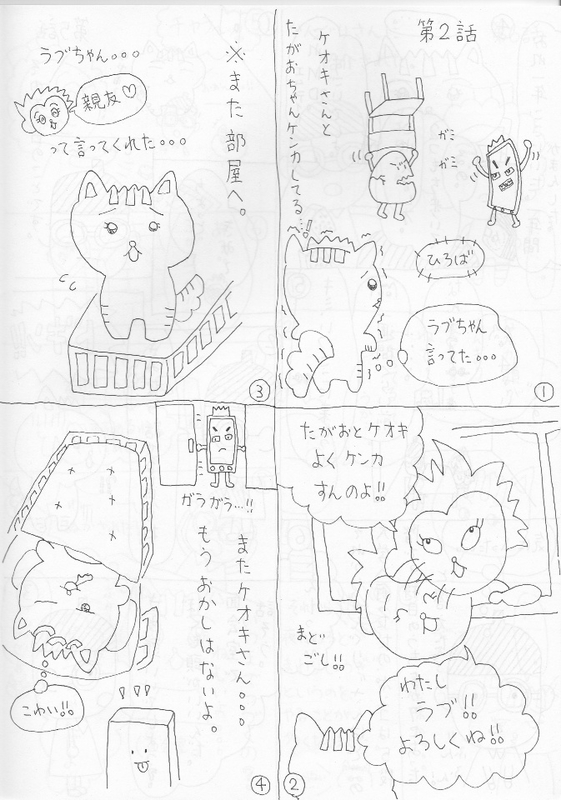 第2話
ケオキさんと
たがおちゃんケンカしてる...!
ガミ
ガミ
ひろば
ラブちゃん
言ってた...
①
たがおとケオキ
よくケンカ
すんのよ!!
まど
ごし!!
わたし
ラブ!!
よろしくね!!
②
※また部屋へ。
ラブちゃん...
親友♡
って言ってくれた...
③
ガラガラ...!!
またケオキさん...
もうおかしはないよ。
こわい!!
④